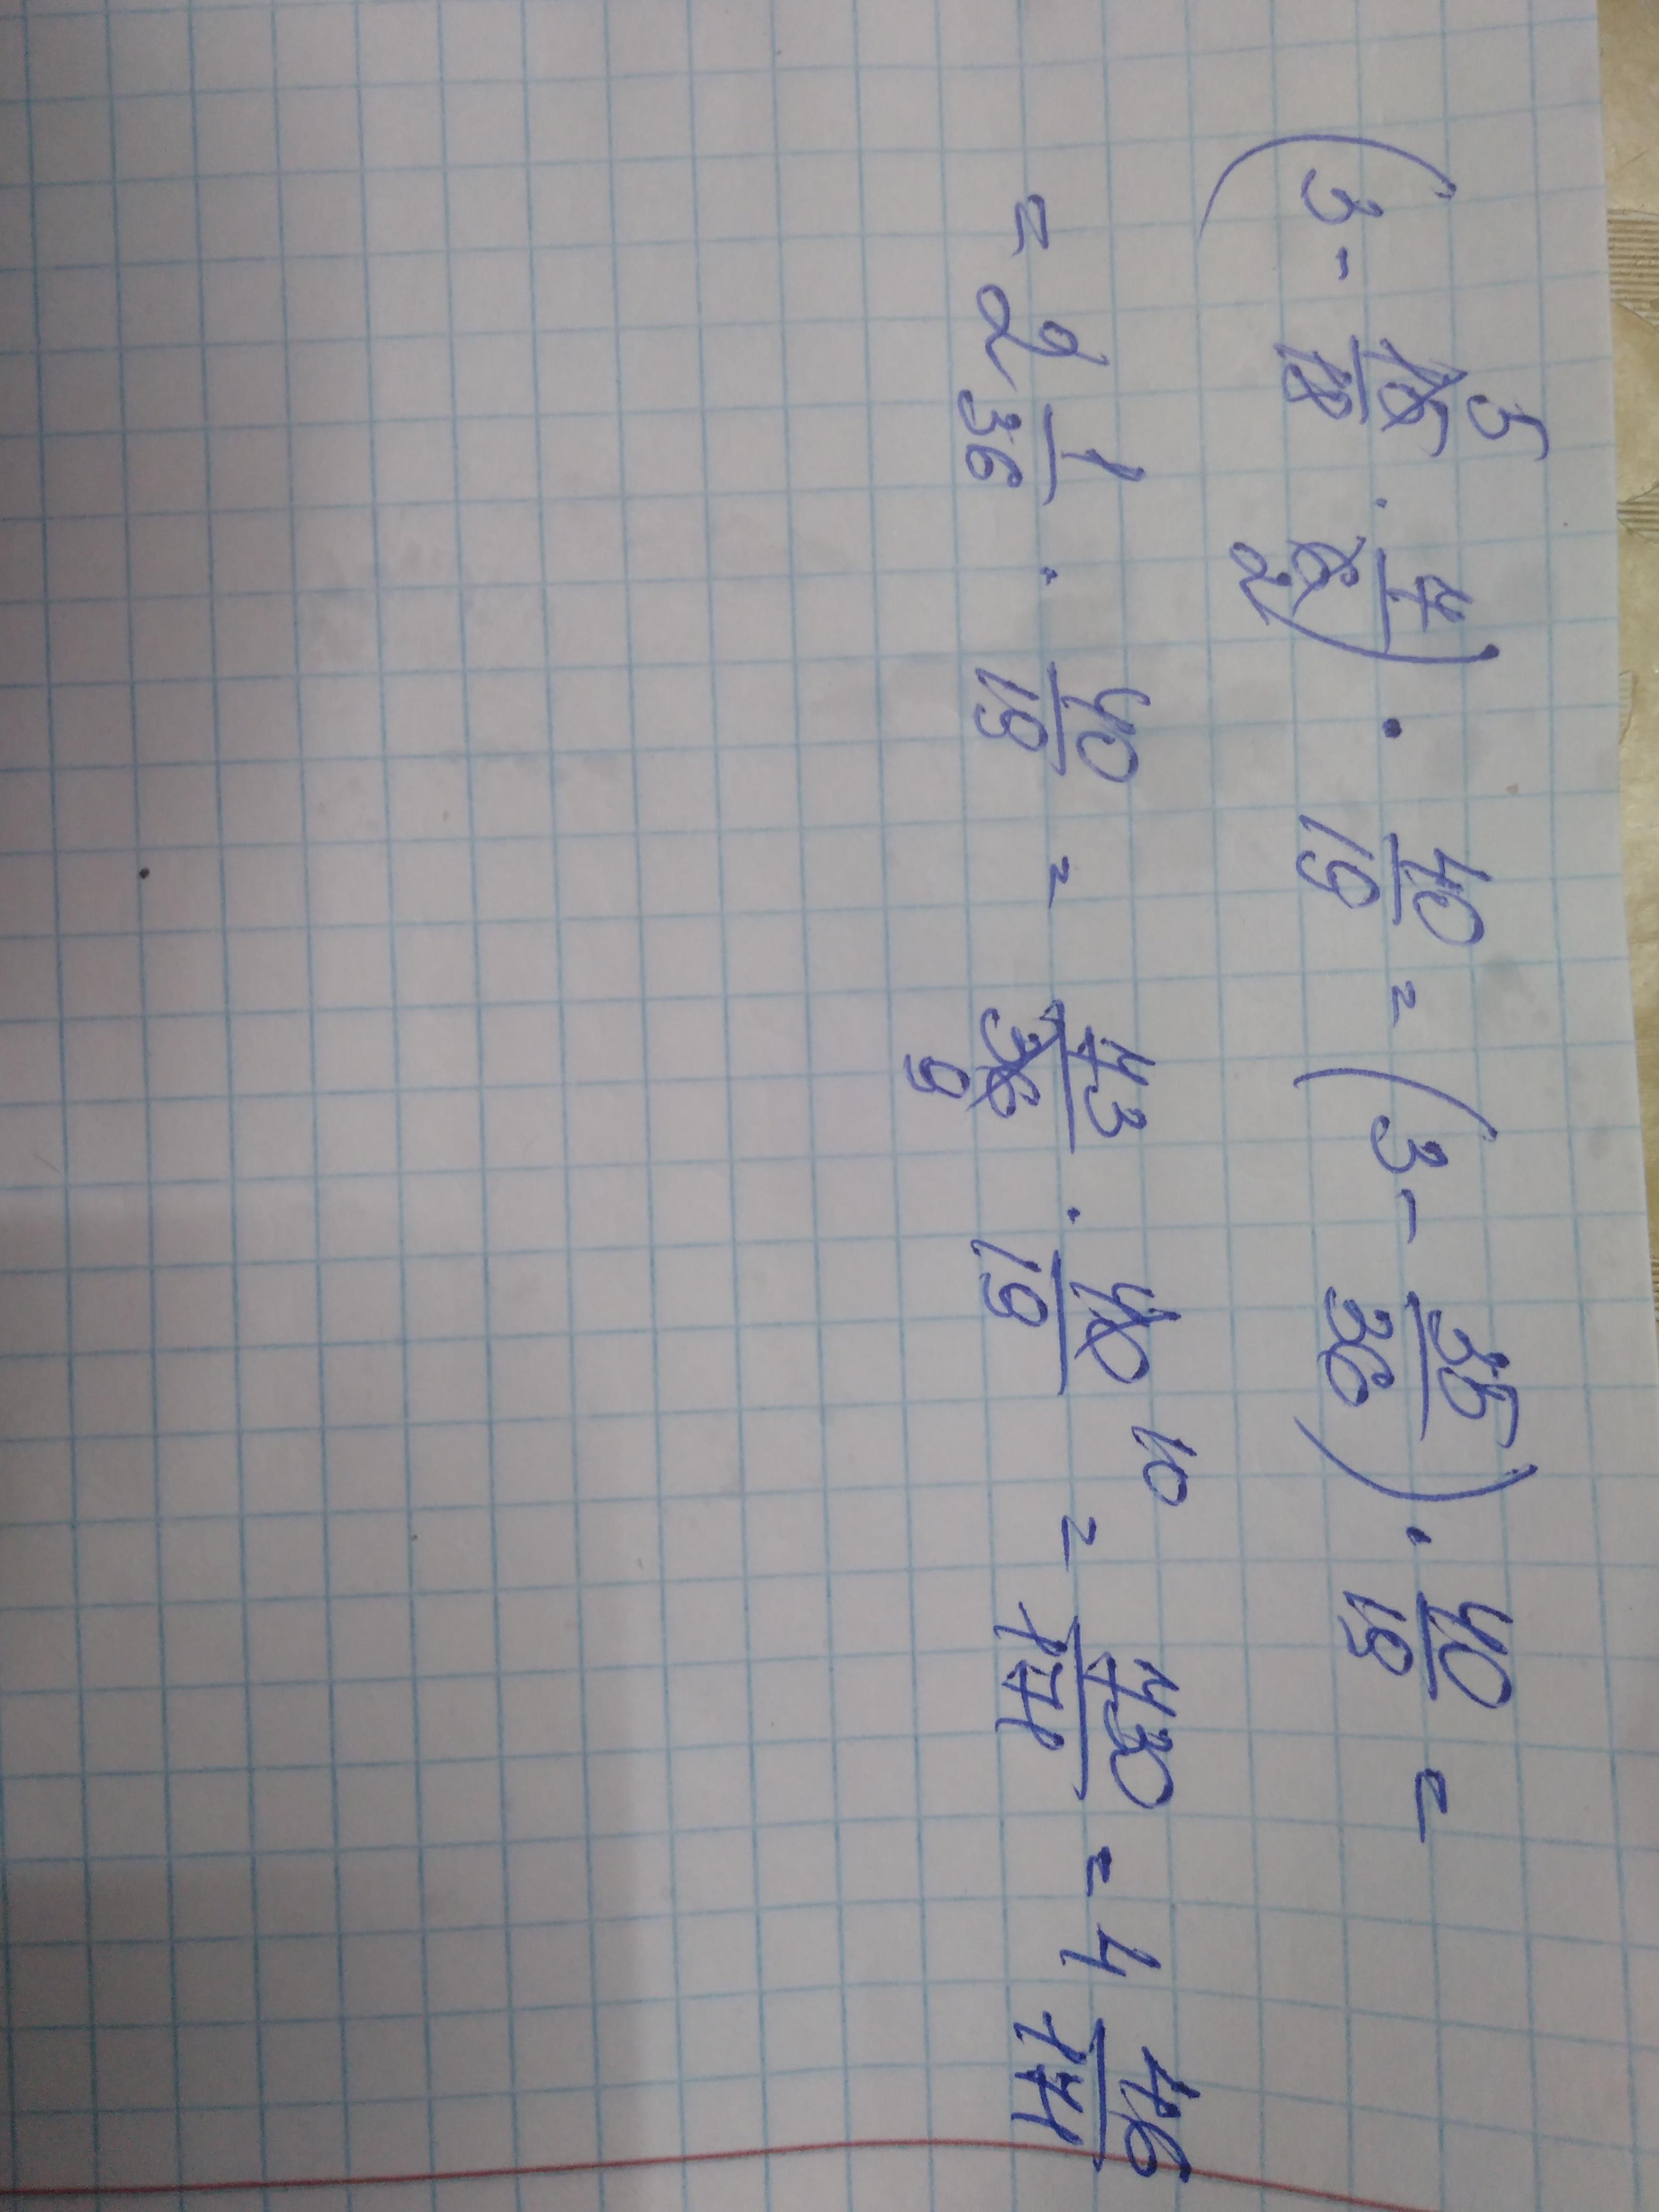 (3 - 15/18 5 · 7/6 2) · 40/19 = (3 - 35/36) · 40/19 =
= 2 1/36 · 40/19 = 73/36 9 · 40/19 10 = 730/171 = 4 46/171